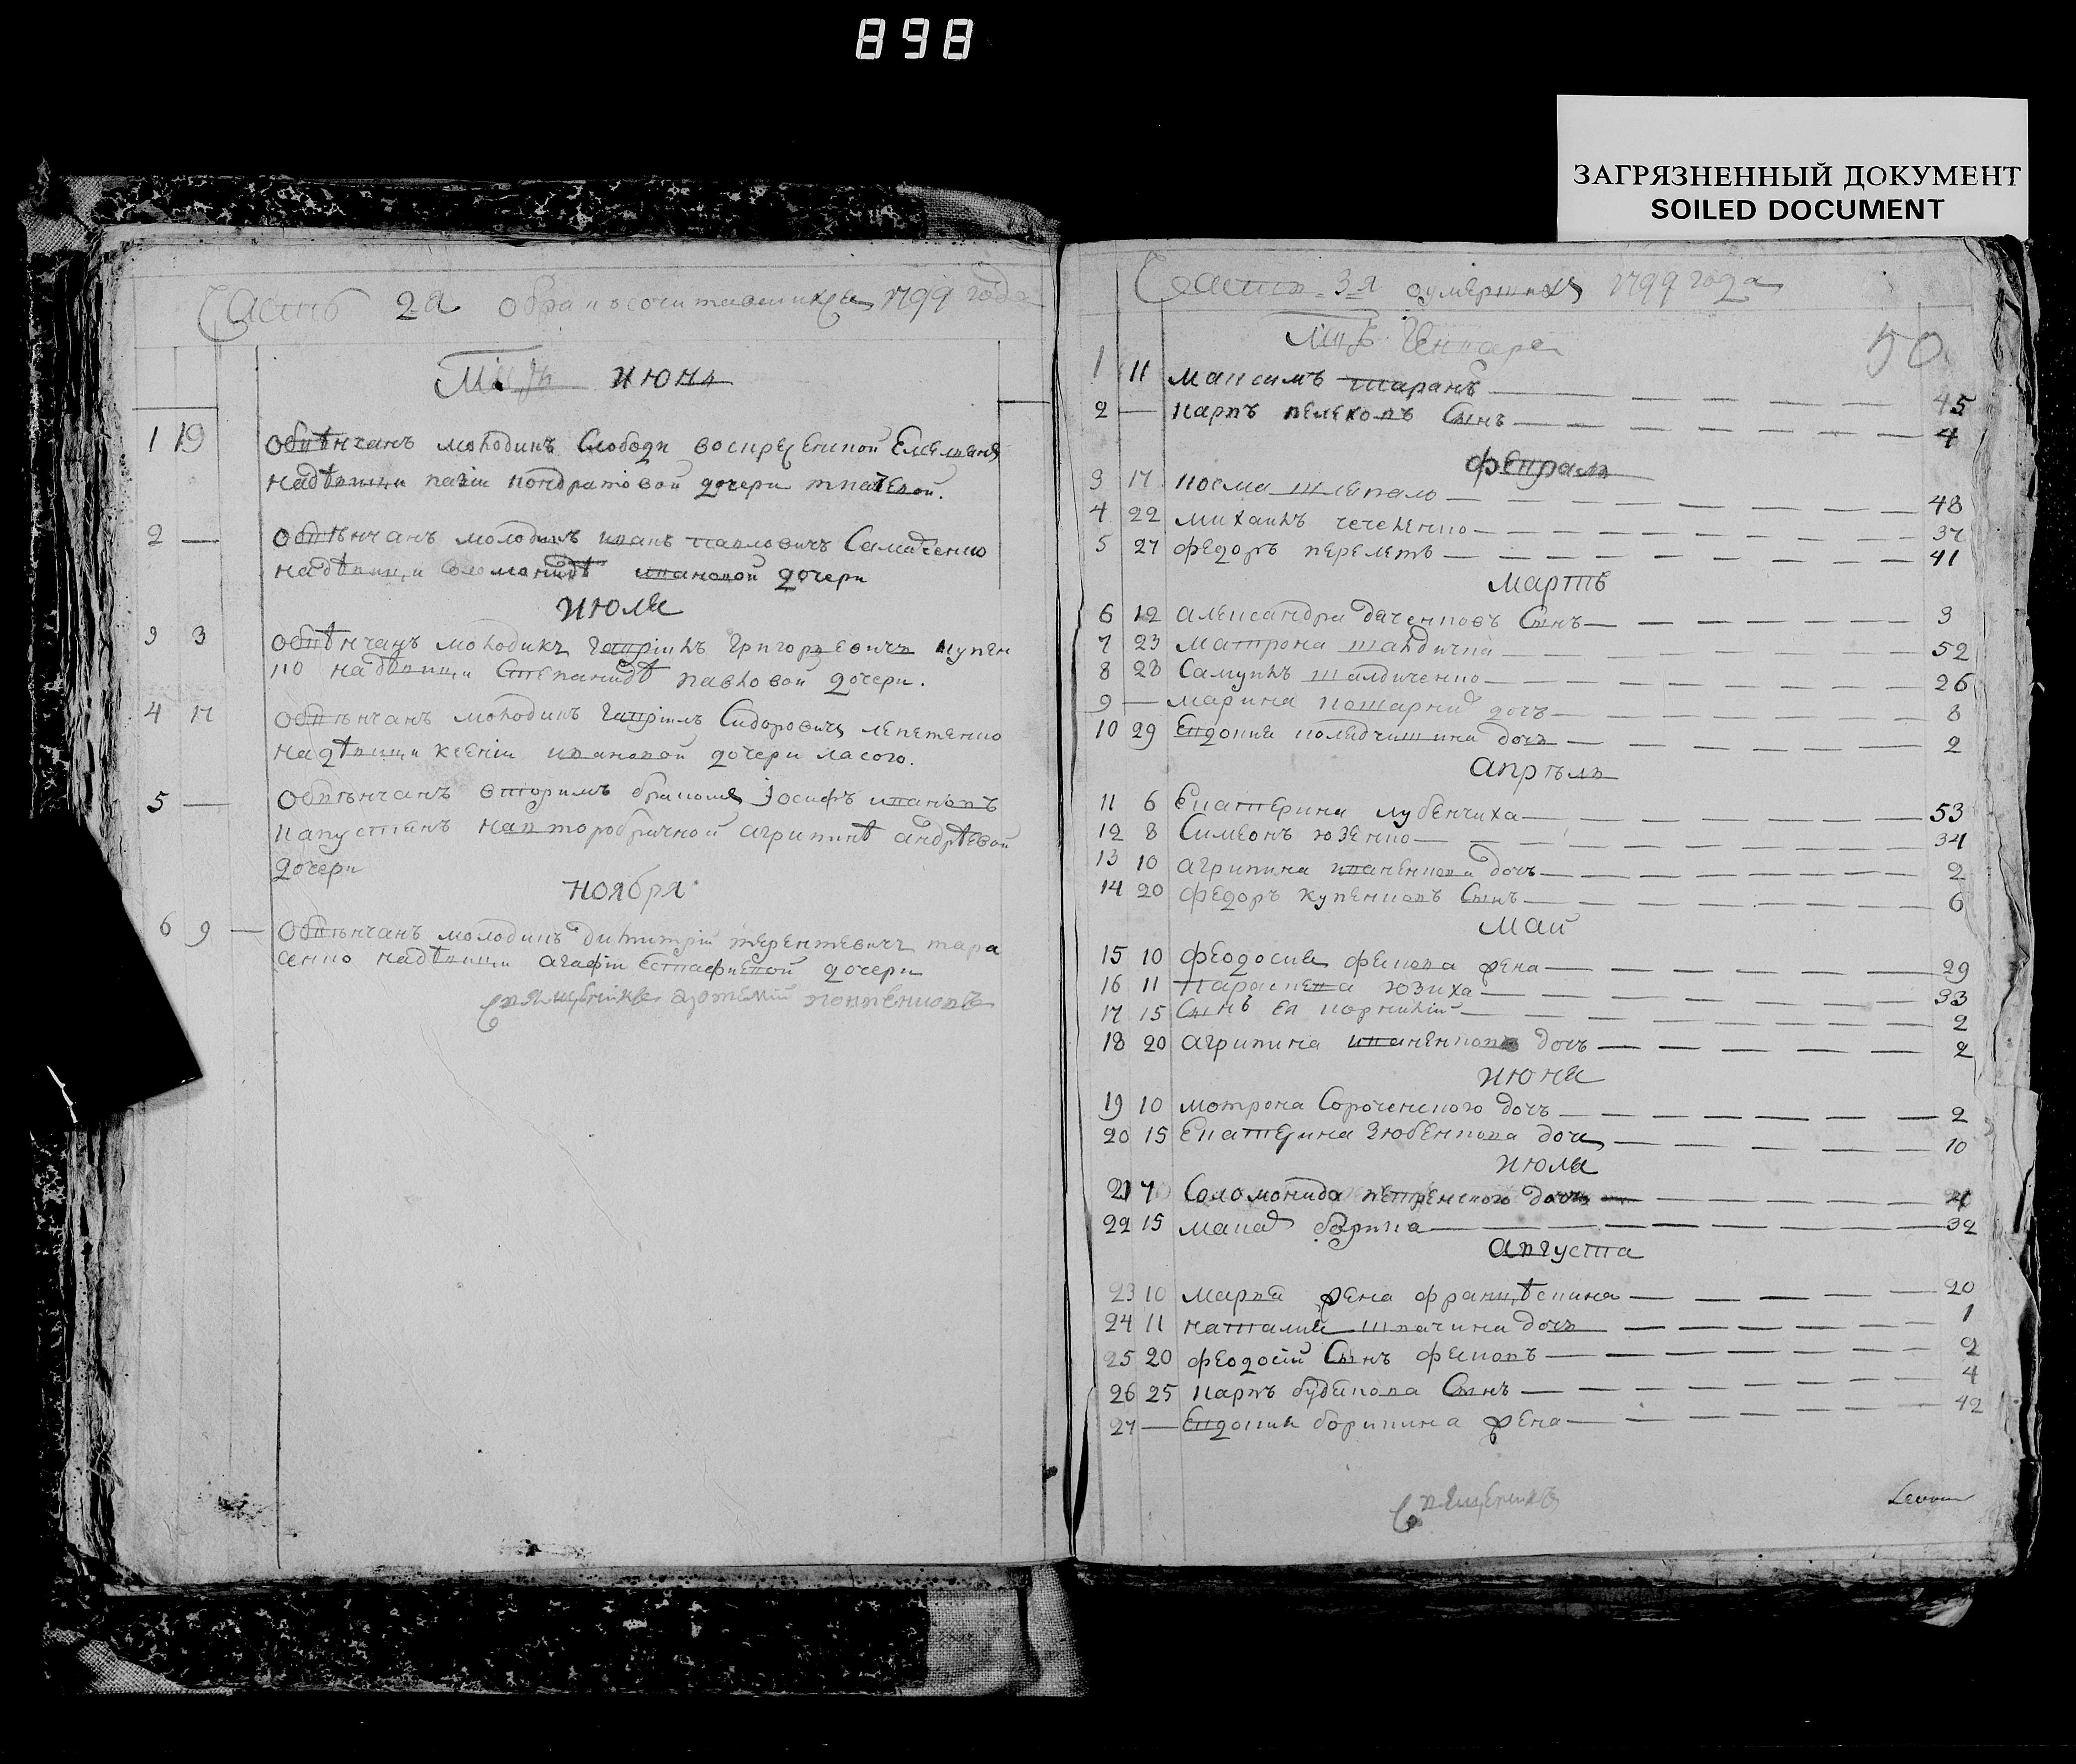 898
ЗАГРЯЗНЕННЫЙ ДОКУМЕНТ
SOILED DOCUMENT
Часть 2я о бракосочитавшихся 1799 года
Мцъ июня
1 19 Обвѣнчанъ молодикъ Слободи воскресенкой
на дѣвици кондратовой дочери
2 — Обвѣнчанъ молодикъ иванъ павловичъ
на дѣвици соломонидѣ ивановой дочери
июля
3 3 Обвѣнчанъ молодикъ гавріилъ григорьевичъ купен
ко на дѣвици степанидѣ павловой дочери.
4 17 Обвѣнчанъ молодикъ гавріилъ Сидоровичъ лепетенко
на дѣвици ксеніи ивановой дочери ласого.
5 — Обвѣнчанъ вторимъ бракомъ іосифъ ивановъ
капустянъ на второбрачной агрипинѣ андрѣевой
дочери
ноября
6 9 — Обвѣнчанъ молодикъ димитрій терентевичъ тара
сенко на дѣвици агафіи естафиевой дочери
Священникъ
Часть 3я о умершихъ 1799 года
50
Мцъ Генваря
1 11 максимъ таранъ 45
2 — карпъ пелеховъ Сынъ 4
февраля
3 17 косма шепало 48
4 22 михаилъ чеченко 37
5 27 федоръ 41
мартъ
6 12 александра даченковъ Сынъ 3
7 23 матрона 52
8 28 Самуилъ шалдиченко 26
9 — марина дочъ 8
10 29 Евдокия дочь 2
апрѣль
11 6 Екатерина лубенчиха 53
12 8 Симеонъ юзенко 34
13 10 агрипина иваненкова дочъ 2
14 20 федоръ купенковъ Сынъ 6
май
15 10 феодосия фескова жена 29
16 11 параскева юзиха 33
17 15 Сынъ ея корнилій 2
18 20 агрипина иваненкова дочъ 2
июня
19 10 мотрона Сороченского дочъ 2
20 15 Екатерина зюбенкова дочь 10
июля
21 7 Соломонида петренского дочь
22 15 32
августа
23 10 жена 20
24 11 наталия ткачина дочь 1
25 20 феодосій Сынъ фесковъ 2
26 25 карпъ Сынъ 4
27 — Евдокия борикина жена 42
Священникъ